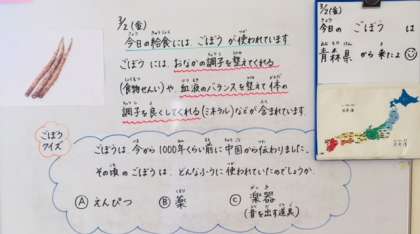 3/2 (金)
今日の給食には ごぼう が使われています
ごぼう には おなかの調子を整えてくれる
(食物せんい) や 血液のバランスを整えて体の
調子を良くしてくれる (ミネラル)などが 含まれています
ごぼう
クイズ
ごぼうは 今から1000年くらい前に 中国から伝わりました。
その頃の ごぼうは、どんなふうに 使われていたのでしょうか
A えんぴつ B 薬 C 楽器
(音を出す道具)
3/2(金)
今日の ごぼう は
青森県 から 来たよ